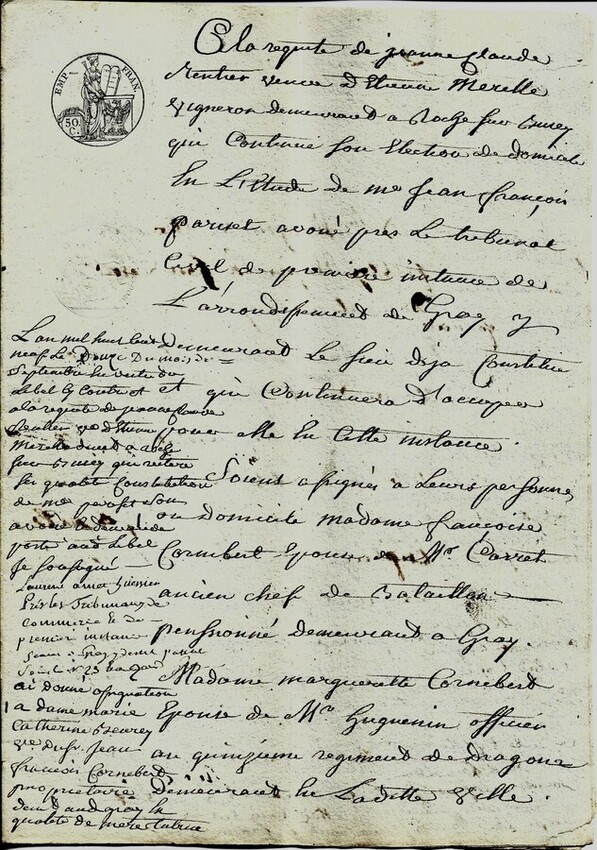 EMP. FRAN.
50. C.
A la requete de jeanne claude
Rentier veuve d'Etienne Merelle
vigneron demeurant a Roche sur
qui Continue son Election de domicile
En L'Etude de me Jean françois
pariset avoué pres Le tribunal
Civil de premiere instance de
L'arrondissement de Gray y
demeurant Le sieu deja Constitué
et qui Continuera d'occuper
pour elle En Cette instance.
Soient assignés a Leurs personnes
ou domicile madame françoise
Cornibert Epouse de Mr Carret
ancien chef de Bataillon
penssionné demeurant a Gray.
Madame marguerette Cornibert
Epouse de Mr huguenin officier
au quinzieme regiment de dragons
demeurant En Laditte Ville.
L'an mil huit Cent
neuf Le Douze Du mois de
Septembre En vertu du
Libel Cy Contre et
a la requete de jeanne claude
Rentier ve d'Etienne
Merelle demt a Roche
sur qui reitere
Sa Constitution
de me pariset Son
avoué
porté aud Libel
Je soussigné
Laurent huissier
Près les Tribunaux de
Commerce et de
premier instance
a Gray demt
Soit N 23
ai donné assignation
a dame marie
Catherine
ve du sr. Jean
françois Cornibert
proprietaire
demt aud gray En
qualité de mere tutrice